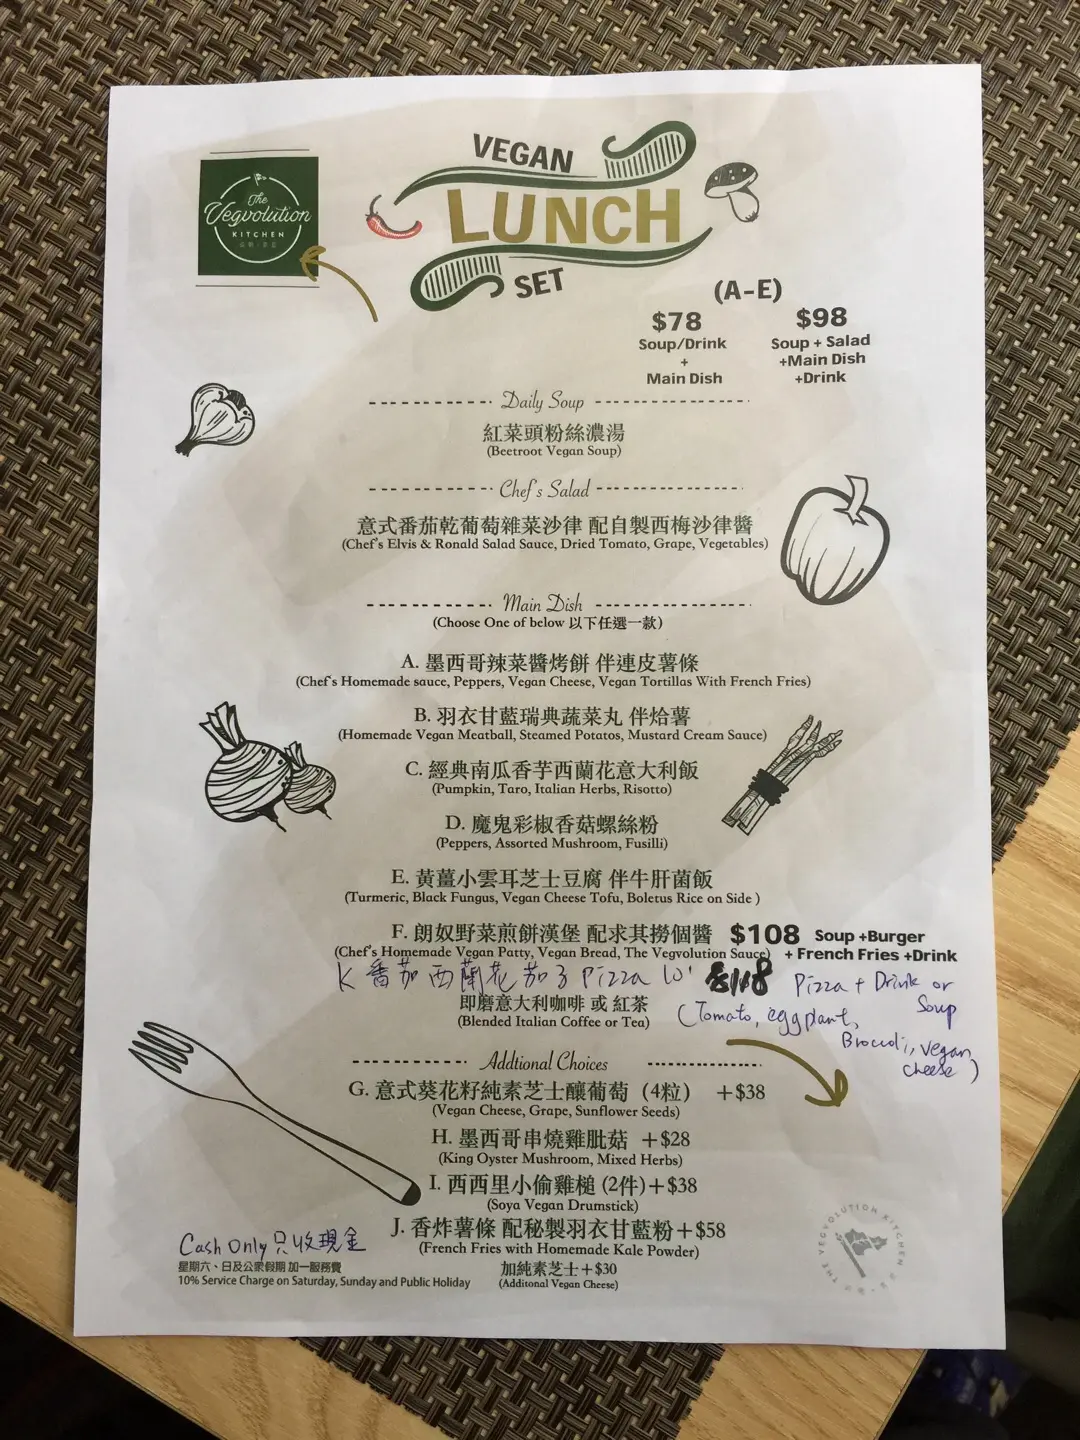 The
Vegvolution
KITCHEN
VEGAN
LUNCH
SET
(A-E)
$78
Soup/Drink
+
Main Dish
$98
Soup + Salad
+Main Dish
+Drink
Daily Soup
紅菜頭粉絲濃湯
(Beetroot Vegan Soup)
Chef's Salad
意式番茄乾葡萄雜菜沙律 配自製西梅沙律醬
(Chef's Elvis & Ronald Salad Sauce, Dried Tomato, Grape, Vegetables)
Main Dish
(Choose One of below 以下任選一款)
A. 墨西哥辣菜醬烤餅 伴連皮薯條
(Chef's Homemade sauce, Peppers, Vegan Cheese, Vegan Tortillas With French Fries)
B. 羽衣甘藍瑞典蔬菜丸 伴烚薯
(Homemade Vegan Meatball, Steamed Potatos, Mustard Cream Sauce)
C. 經典南瓜香芋西蘭花意大利飯
(Pumpkin, Taro, Italian Herbs, Risotto)
D. 魔鬼彩椒香菇螺絲粉
(Peppers, Assorted Mushroom, Fusilli)
E. 黃薑小雲耳芝士豆腐 伴牛肝菌飯
(Turmeric, Black Fungus, Vegan Cheese Tofu, Boletus Rice on Side )
F. 朗奴野菜煎餅漢堡 配求其撈個醬 $108 Soup +Burger
(Chef's Homemade Vegan Patty, Vegan Bread, The Vegvolution Sauce) + French Fries +Drink
K 番茄西蘭花茄子 Pizza 10" $118 Pizza + Drink or
Soup
即磨意大利咖啡 或 紅茶
(Blended Italian Coffee or Tea)
(Tomato, eggplant,
Broccoli, vegan
cheese)
Addtional Choices
G. 意式葵花籽純素芝士釀葡萄 (4粒) +$38
(Vegan Cheese, Grape, Sunflower Seeds)
H. 墨西哥串燒雞肶菇 +$28
(King Oyster Mushroom, Mixed Herbs)
I. 西西里小偷雞槌 (2件)+$38
(Soya Vegan Drumstick)
J. 香炸薯條 配秘製羽衣甘藍粉+$58
(French Fries with Homemade Kale Powder)
加純素芝士+$30
(Additonal Vegan Cheese)
Cash Only 只收現金
星期六、日及公眾假期 加一服務費
10% Service Charge on Saturday, Sunday and Public Holiday
THE VEGVOLUTION KITCHEN